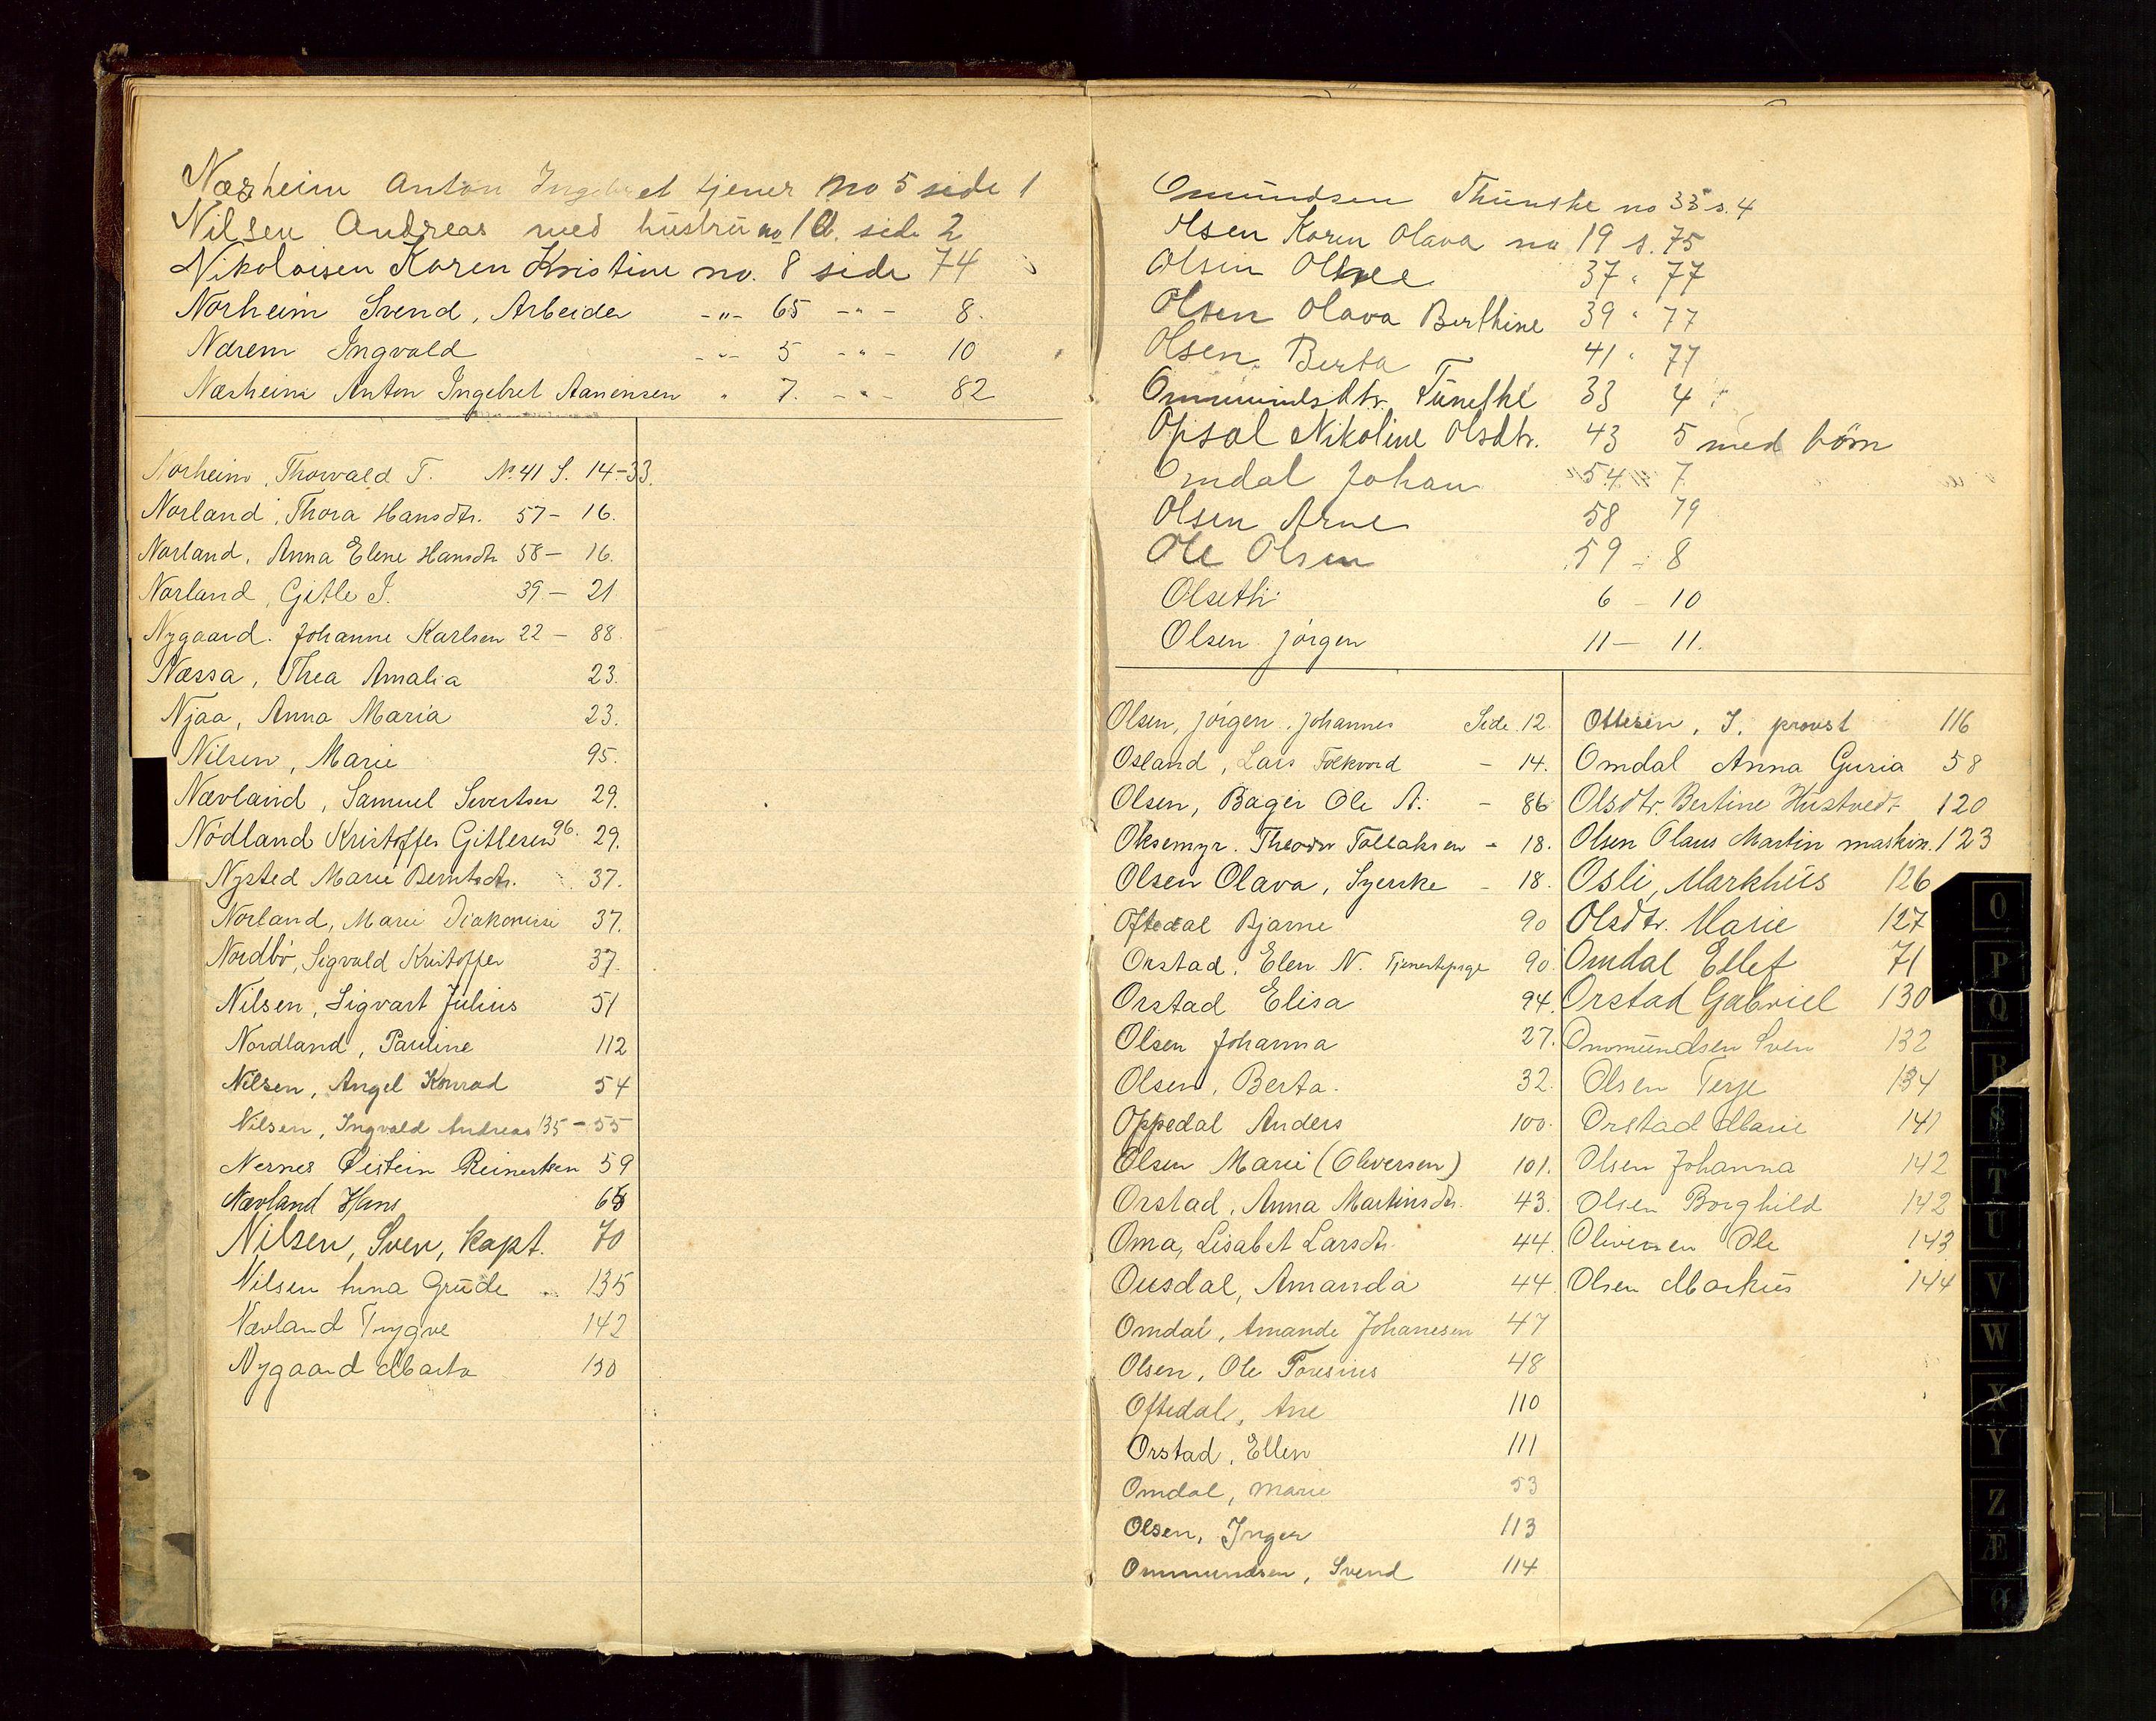 Næsheim Anton Ingebret tjener no 5 side 1
Nilsen Andreas med hustru no 10. side 2
Nikolaisen Karen Kristine no. 8 side 74
Norheim Svend, Arbeider -"- 65 -"- 8.
Nærem Ingvald -"- 5 -"- 10
Næsheim Anton Ingebret Aanensen " 7. -"- 82
Norheim, Thorvald T. No. 41 S. 14-33.
Norland, Thora Hansdtr. 57- 16.
Norland, Anna Elene Hansdtr 58- 16.
Norland, Gitle J. 39- 21
Nygaard. Johanne Karlsen 22- 88.
Næssa, Thea Amalia 23.
Njaa, Anna Maria 23.
Nilsen, Marie 95.
Nævland, Samuel Sivertsen 29.
Nödland Kristoffer Gitlesen 96. 29.
Nysted Marie Berntsdtr. 37.
Norland, Marie Diakonisse 37.
Nordbö, Sigvald Kristoffer 37.
Nilsen, Sigvart Julius 51
Nordland, Pauline 112
Nilsen, Angel Konrad 54
Nilsen, Ingvald Andreas 135-55
Nernes Øistein Reinertsen 59
Nævland Hans
Nilsen, Sven, Kapt. 70
Nilsen Anna Grude 135
Nævland Trygve 142
Nygaard Marta 150
Omundsen no 33 s. 4
Olsen Karen Olava no 19 s. 75
Olsen 37 " 77
Olsen Olava Berthine 39 " 77
Olsen, Berta 41 " 77
Ommundsdtr. 33 4
Opsal Nikoline Olsdtr. 43 5 med børn
Omdal Johan "54" 7
Olsen Arne 58 79
Ole Olsen 59 - 8
Olseth 6 - 10
Olsen Jörgen 11 - 11.
Olsen, Jörgen Johannes Side 12.
Osland, Lars Folkvord - 14.
Olsen, Bager Ole A. - 86
Oksemyr. Theodor Tollaksen - 18.
Olsen Olava, Syerske - 18.
Oftedal Bjarne 90
Orstad, Elen N. Tjenestepige 90.
Orstad Elisa 94.
Olsen Johanna 27.
Olsen, Berta. 32.
Oppedal Anders 100.
Olsen Marie (Oliversen) 101.
Orstad, Anna Martinsdtr. 43.
Oma, Lisabet Larsdtr. 44.
Ousdal, Amanda 44.
Omdal, Amande Johanesen 47
Olsen, Ole 48
Oftedal, Ane 110
Orstad, Ellen 111
Omdal, Marie 53
Olsen, Inger 113
Ommundsen, Svend 114
Ottesen, J. provst 116
Omdal Anna Guria 58
Olsdtr. Bertine Hustvedt 120
Olsen Olaus Martin maskin. 123
Osli, Markhus 126
Olsdtr. Marie 127
Omdal Ellef 71
Orstad Gabriel 130
Ommundsen Sven 132
Olsen Terje 134
Orstad Marie 141
Olsen Johanna 142
Olsen Borghild 142
Oliversen Ole 143
Olsen Markus 144
O
P
Q
R
S
T
U
V
W
X
Y
Z
Æ
Ø